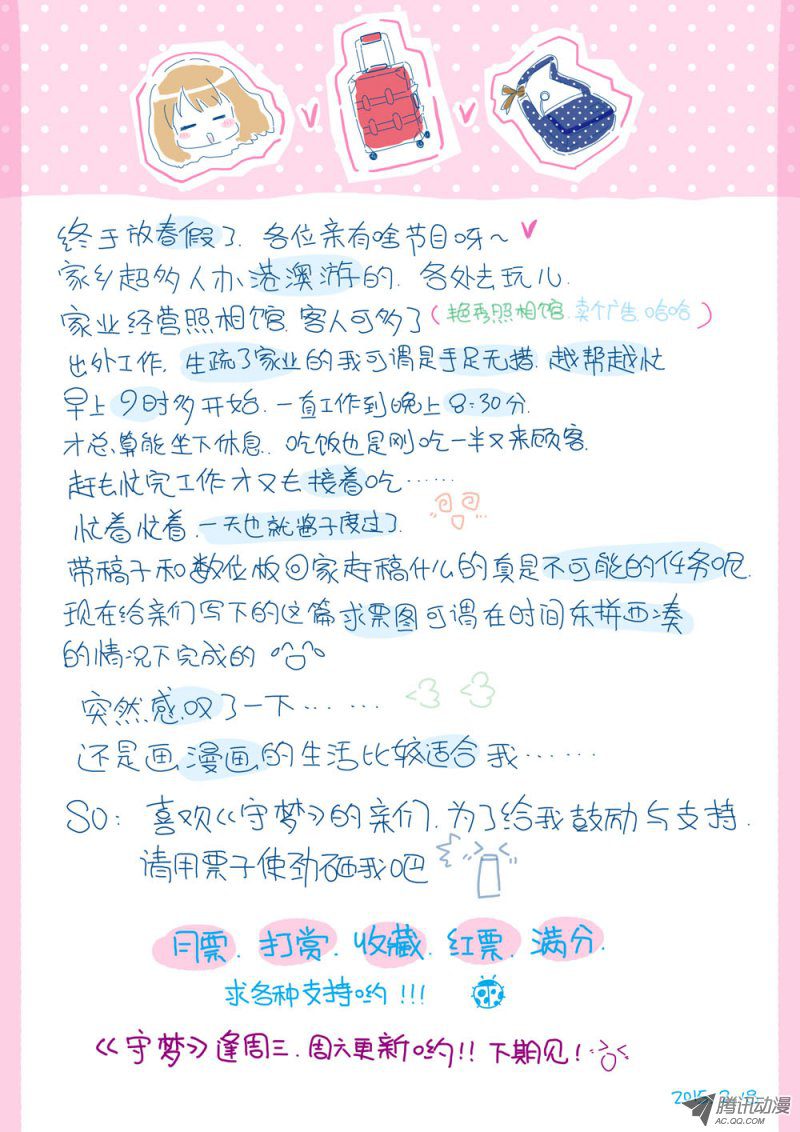 终于放春假了.各位亲有啥节目呀~
家乡超多人办港澳游的.各处去玩儿.
家业经营照相馆.客人可多了(艳秀照相馆.卖个广告.哈哈)
出外工作,生疏了家业的我可谓是手足无措.越帮越忙
早上9时多开始.一直工作到晚上8:30分.
才总算能坐下休息.吃饭也是刚吃一半又来顾客.
赶去忙完工作才又去接着吃……
忙着忙着.一天也就酱子度过了.
带稿子和数位版回家赶稿什么的真是不可能的任务呢.
现在给亲们写下的这篇求票图可谓在时间东拼西凑
的情况下完成的
突然感叹了一下……
还是画漫画的生活比较适合我……
SO:喜欢《守梦》的亲们.为了给我鼓励与支持.
请用票子使劲砸我吧
月票.打赏.收藏.红票.满分.
求各种支持哟!!!
《守梦》逢周三.周六更新哟!!下期见!
2015.
腾讯动漫
AC.QQ.COM